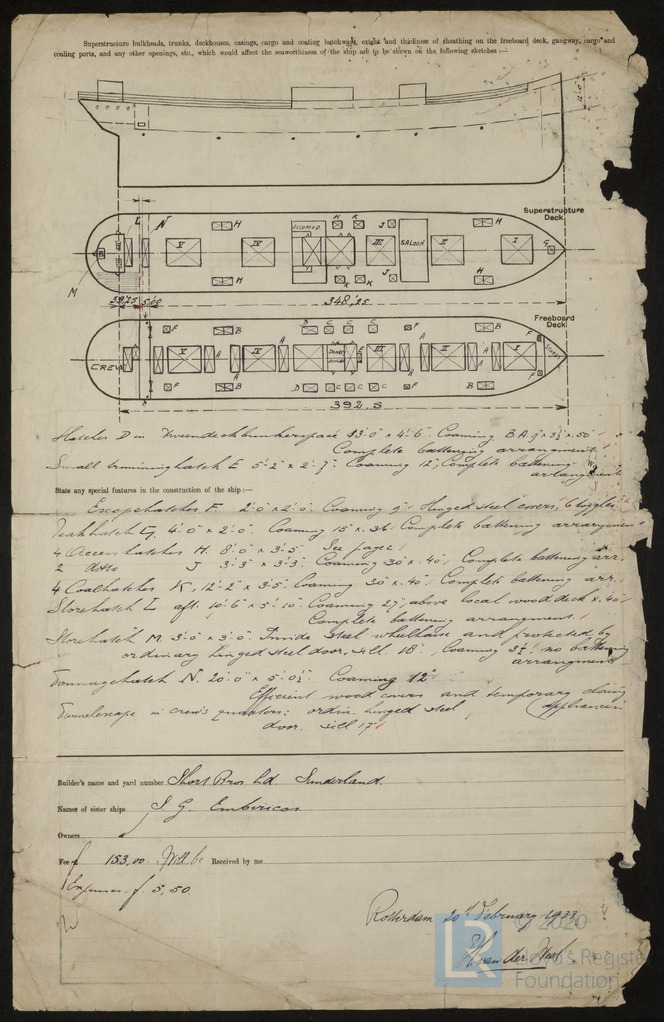 Superstructure bulkheads, trunks, deckhouses, casings, cargo and coaling hatchways, extent and thickness of sheathing on the freeboard deck, gangway, cargo and
coaling ports, and any other openings, etc., which would affect the seaworthiness of the ship are to be shewn on the following sketches :—
Superstructure
Deck
L N H K K J H
V IV III SALOON II I G
M H K K J H
39.75 5.00 348.25
Freeboard
Deck
F B D C C C F B F
CREW V A IV A III A II A I STORES
F B D C C C F B F
392.5
Hatches D in Tweendeckbunkerspace 13'.0" x 4'.6". Coaming B.A. 9" x 3½" x .50"
Complete battening arrangment
Small trimminghatch E 5'.2" x 2'.7". Coaming 12", Complete battening
arrangment
State any special features in the construction of the ship :—
Escapehatches F. 2'.0" x 2'.0". Coaming 9". Hinged steel covers, 6 toggles.
4'.0" x 2'.0". Coaming 15" x .36". Complete battening arrangement
4 Access hatches H. 8'.0" x 3'.5". See page 1
2 ditto J 3'.3" x 3'.3". Coaming 30" x .40". Complete battening arr.
4 Coalhatches K, 12'.2" x 3'.5". Coaming 30" x .40". Complete battening arr.
Storehatch L aft. 10'.6" x 5'.10". Coaming 27" above local wood deck x .40"
Complete battening arrangment.
Storehatch M 3'.0" x 3'.0". Inside steel wheelhouse and protected by
ordinary hinged steel door, sill 18". Coaming 3½" no battening
arrangment
Tonnagehatch N. 20'.0" x 5'.0½". Coaming 12"
Efficient wood covers and temporary closing
appliances
Tunnelescape in crew's quarters: ordin. hinged steel
door. Sill 17"
Builder's name and yard number Short Bros Ld Sunderland.
Names of sister ships J. G. Embiricos
Owners
Fee f 153,00. Will be Received by me
Expenses f. 5,50.
Rotterdam 20th February 1933
van der
LR
© 2020
Lloyd's Register
Foundation